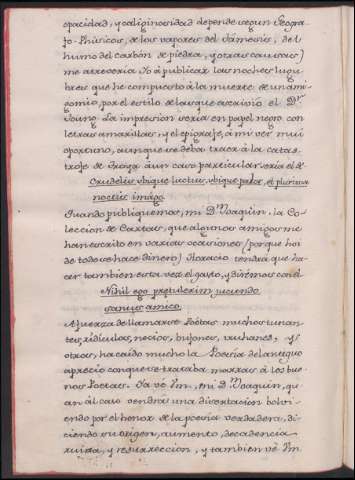 opacidad, y caliginosidad depende segun Geogra-
fo-Phisicos, de los vapores del Tamesis, del
humo del carbón de piedra, y otras causas)
me atreveria Yo á publicar las noches lugu-
bres que he compuesto á la muerte de un ami-
go mio, por el estilo de las que escrivió el Dr.
Young. La impresion seria en papel negro con
letras amarillas, y el epigrafe, á mi ver mui
oportuno, aunque se deba traer á la catas-
trofe de Troya à un caso particular seria el de
Crudelis ubique luctus, ubique pabor, et plurima
noctis imago.
Quando publiquemos, mi Dn. Joaquin, la Co-
leccion de Cartas, que algunos amigos me
han escrito en varias ocasiones (porque hoi
de todo se hace dinero) Horacio tendrá que ha-
cer tambien esta vez el gasto, y dirémos con él
Nihil ego prætulerim jucundo
sanus amico.
A fuerza de llamarse Poëtas muchos tunan-
tes, ridiculos, necios, bufones, truhanes, y
otros, ha caído mucho la Poesia del antiguo
aprecio con que se trataba marras à los bue-
nos Poëtas. Ya vé Vm., mi Dn. Joaquin, qu-
an al caso vendrá una disertacion bolvi-
endo por el honor de la poesia verdadera, di-
ciendo su origen, aumento, decadencia
ruina, y resurreccion, y tambien vé Vm.